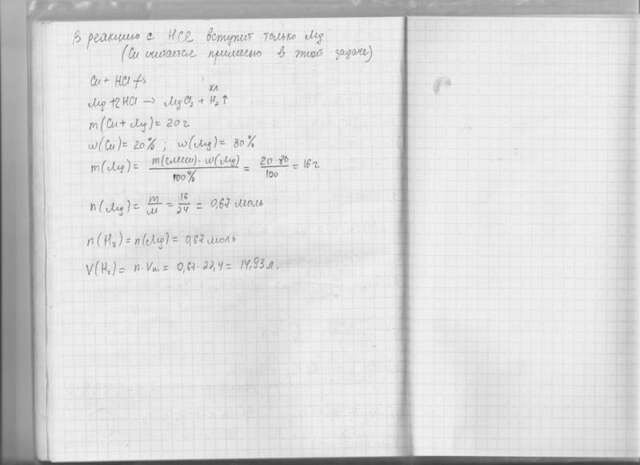 В реакцию с HCl вступит только Mg
(Cu считается примесью в этой задаче)
Cu + HCl ≠>
x л
Mg + 2HCl → MgCl₂ + H₂↑
m(Cu + Mg) = 20 г
w(Cu) = 20% ; w(Mg) = 80%
m(Mg) = m(смеси) · w(Mg) / 100% = 20 · 80 / 100 = 16 г
n(Mg) = m / M = 16 / 24 = 0,67 моль
n(H₂) = n(Mg) = 0,67 моль
V(H₂) = n · Vm = 0,67 · 22,4 = 14,93 л.